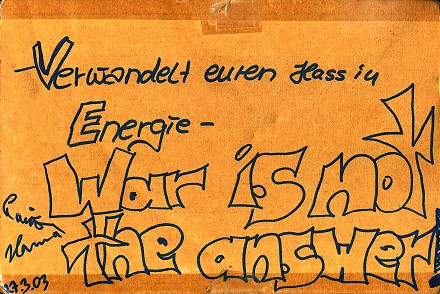 Verwandelt euren Hass in
Energie -
War is not
the answer!
Hanna
17.3.03